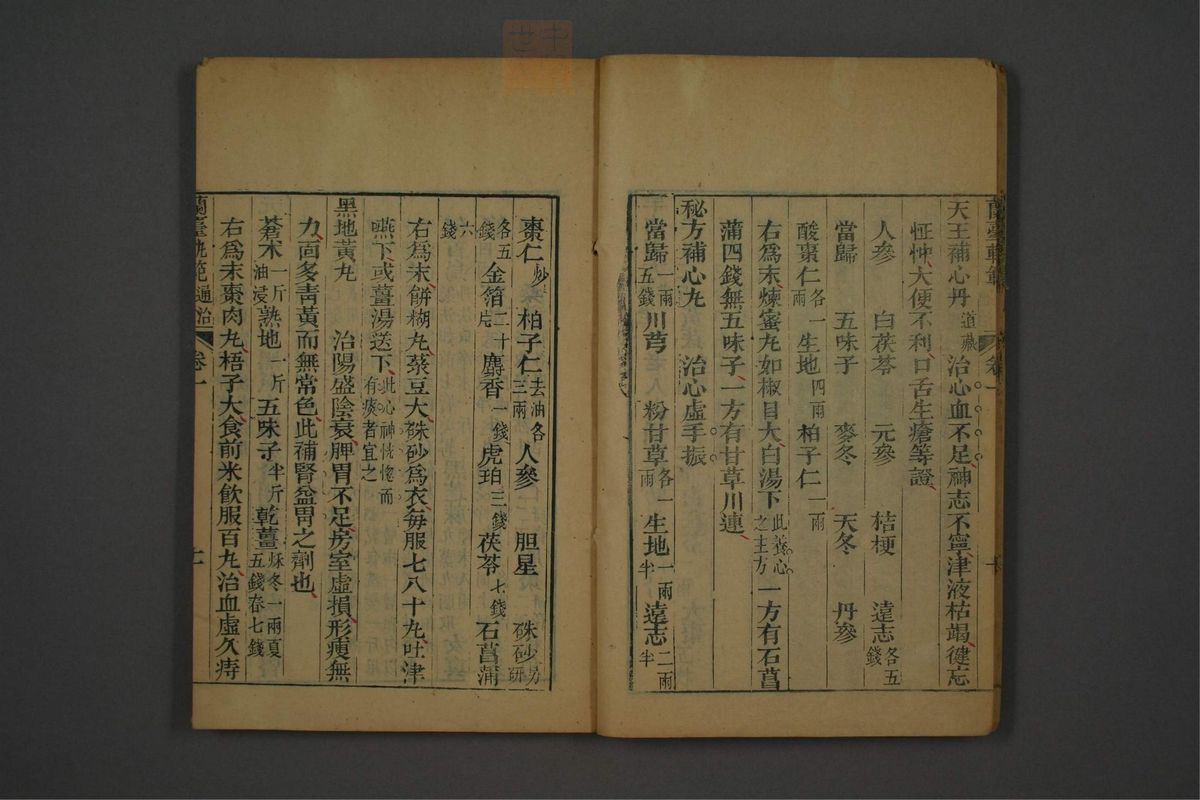 蘭臺軌範 卷一
天王補心丹 道藏 治心血不足神志不寧津液枯竭健忘
怔忡大便不利口舌生瘡等證
人參 白茯苓 元參 桔梗 遠志各五錢
當歸 五味子 麥冬 天冬 丹參
酸棗仁各一兩 生地四兩 柏子仁一兩
右爲末煉蜜丸如椒目大白湯下此養心之主方一方有石菖
蒲四錢無五味子一方有甘草川連
秘方補心丸 治心虛手振
當歸一兩五錢 川芎 粉甘草各一兩 生地一兩半 遠志二兩半
棗仁炒 柏子仁去油各三兩 人參 胆星 硃砂另研
各五錢 金箔二十片 麝香一錢 虎珀三錢 茯苓七錢 石菖蒲
六錢
右爲末餅糊丸菉豆大硃砂爲衣每服七八十丸吐津
嚥下或薑湯送下此心神恍惚而有痰者宜之
黑地黃丸 治陽盛陰衰脾胃不足房室虛損形瘦無
力面多青黃而無常色此補腎益胃之劑也
蒼朮一斤油浸 熟地一斤 五味子半斤 乾薑秋冬一兩夏五錢春七錢
右爲末棗肉丸梧子大食前米飲服百丸治血虛久痔
蘭臺軌範 通治 卷一